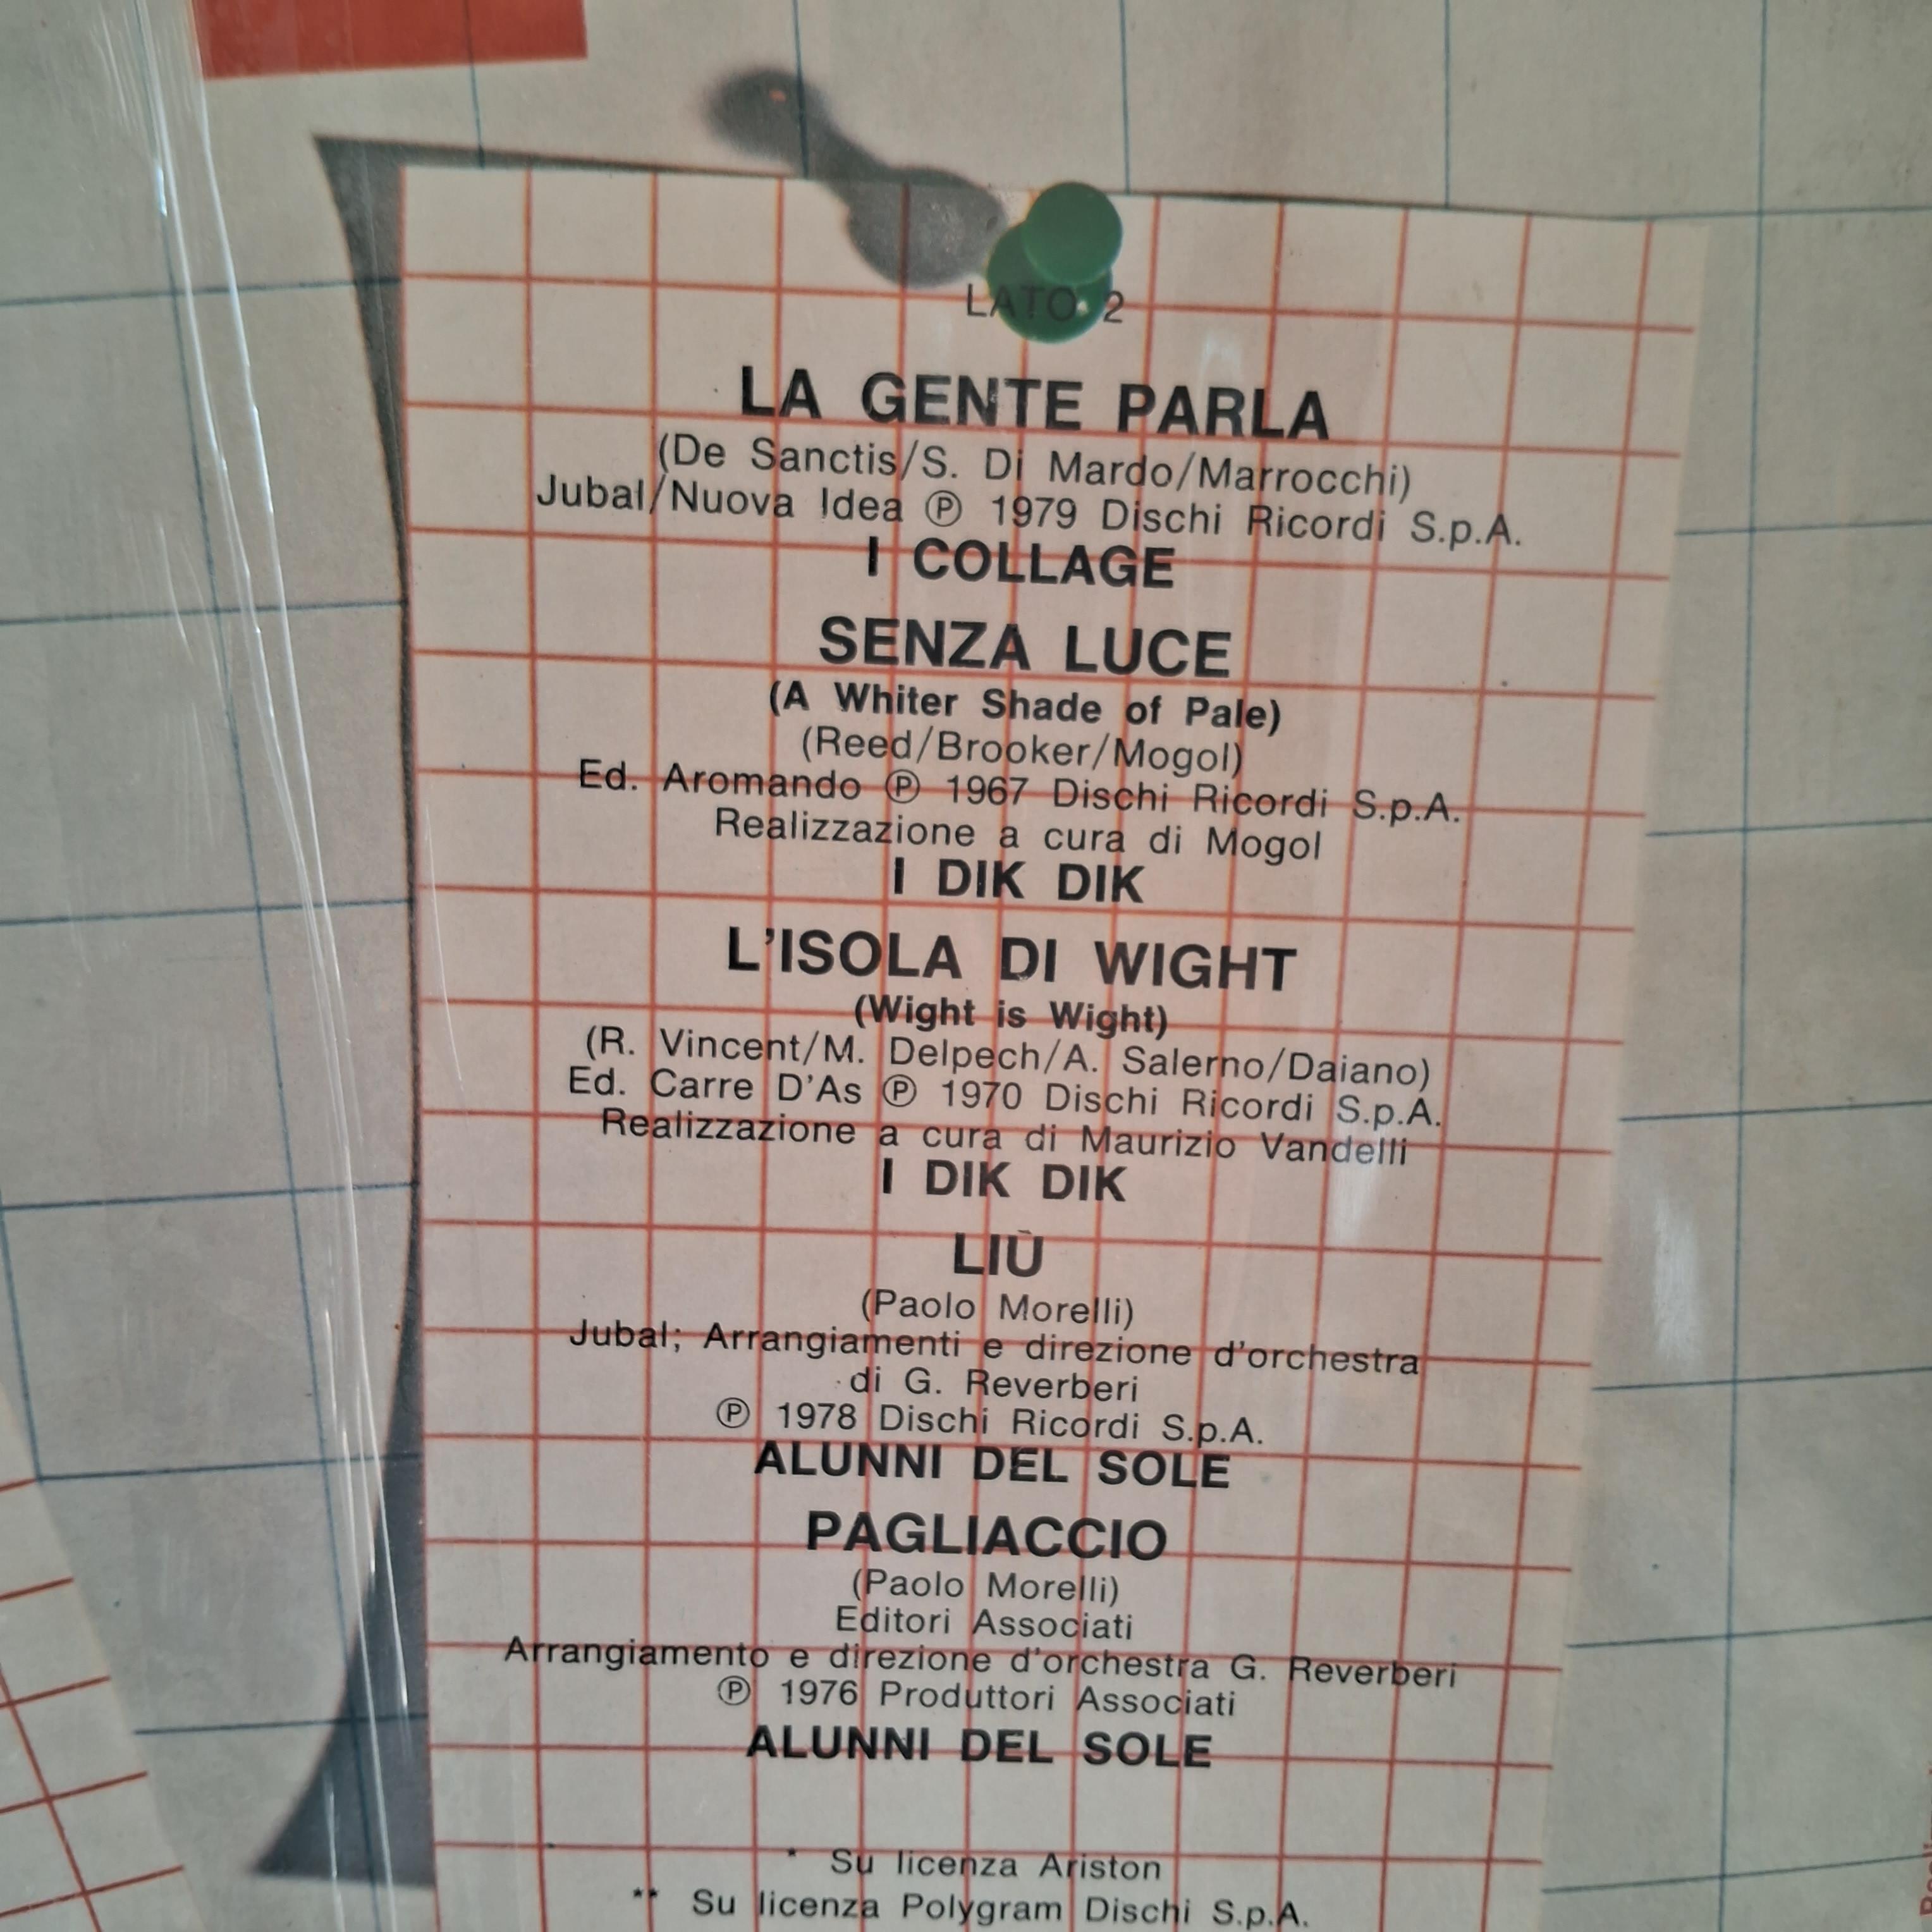 LATO 2
LA GENTE PARLA
(De Sanctis/S. Di Mardo/Marrocchi)
Jubal/Nuova Idea Ⓟ 1979 Dischi Ricordi S.p.A.
I COLLAGE
SENZA LUCE
(A Whiter Shade of Pale)
(Reed/Brooker/Mogol)
Ed. Aromando Ⓟ 1967 Dischi Ricordi S.p.A.
Realizzazione a cura di Mogol
I DIK DIK
L'ISOLA DI WIGHT
(Wight is Wight)
(R. Vincent/M. Delpech/A. Salerno/Daiano)
Ed. Carre D'As Ⓟ 1970 Dischi Ricordi S.p.A.
Realizzazione a cura di Maurizio Vandelli
I DIK DIK
LIÙ
(Paolo Morelli)
Jubal; Arrangiamenti e direzione d'orchestra
di G. Reverberi
Ⓟ 1978 Dischi Ricordi S.p.A.
ALUNNI DEL SOLE
PAGLIACCIO
(Paolo Morelli)
Editori Associati
Arrangiamento e direzione d'orchestra G. Reverberi
Ⓟ 1976 Produttori Associati
ALUNNI DEL SOLE
* Su licenza Ariston
** Su licenza Polygram Dischi S.p.A.